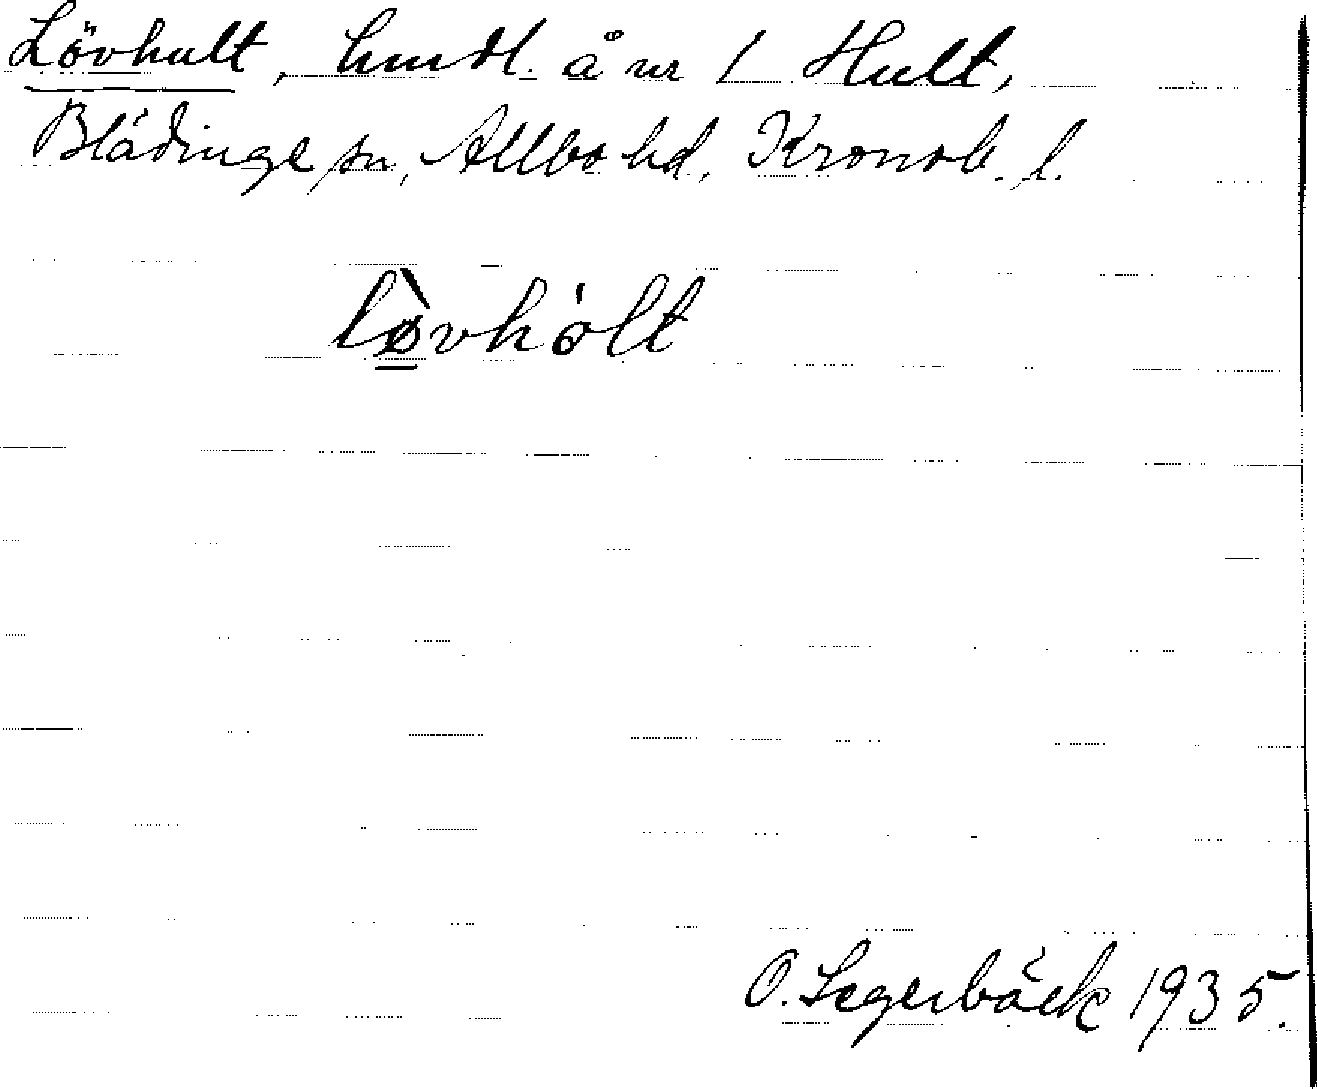 Lövhult, hmdl. å nr 1 Hult,
Blädinge sn, Allbo hd, Kronob. l.
lø̀vhólt
O. Segerbäck 1935.